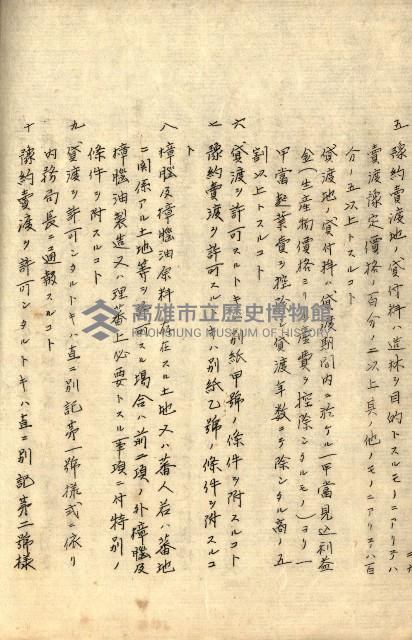 五 豫約賣渡地ノ貸付料ハ造林ヲ目的トスルモノニアリテハ
賣渡豫定價格ノ百分ノ二以上其ノ他ノモノニアリテハ百
分ノ五以上トスルコト
貸渡地ノ貸付料ハ貸渡期間內ニ於ケル一甲當見込利益
金(生產物價格ヨリ生產費ヲ控除シタルモノ)ヨリ一
甲當起業費ヲ控除シ貸渡年數ニテ除シタル商ノ五
割以上トスルコト
六 貸渡ヲ許可スルトキハ別紙甲號ノ條件ヲ附スルコト
七 豫約賣渡ヲ許可スルトキハ別紙乙號ノ條件ヲ附スルコ
ト
八 樟腦及樟腦油原料ノ存在スル土地又ハ蕃人若ハ蕃地
ニ關係アル土地等ヲ スル場合ハ前二項ノ外樟腦及
樟腦油製造又ハ理蕃上必要トスル事項ニ付特別ノ
條件ヲ附スルコト
九 貸渡ヲ許可シタルトキハ直ニ別記第一號樣式ニ依リ
內務局長ニ通報スルコト
十 豫約賣渡ヲ許可シタルトキハ直ニ別記第二號樣
高雄市立歷史博物館
KAOHSIUNG MUSEUM OF HISTORY